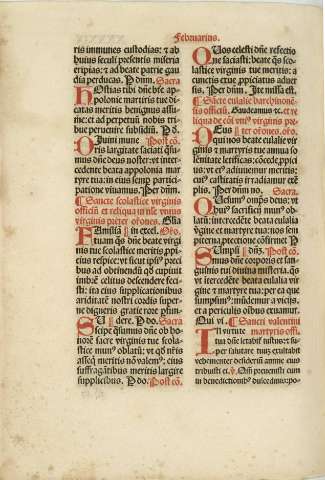 Februarius.
ris immunes custodias: ⁊ ab
huius seculi presentis miseria
eripias: ⁊ ad beate patrie gau
dia perducas. P dñm. Sacra
Hostias tibi dñe bte ap
polonie martiris tue di
catas meritis benignus assu-
me: ⁊ ad perpetuũ nobis tri
bue peruenire subsidiũ. P d.
Quini mune Post cõ.
ris largitate saciati q̃su
mus dñe deus noster: vt inter
cedente beata appolonia mar
tyre tua: in eius semp partici-
patione viuamus. P dñm.
Sancte scolastice virginis
officiũ et reliqua vt in vnius
virginis preter orones. Oro.
Familiã in excel.
tuam q̃s dñe beate virgi
nis tue scolastice meritis ppi-
cius respice: vt sicut ipsius preci
bus ad obtinendũ qđ cupiuit
imbrẽ celitus descendere feci-
sti: ita eius supplicationibus
ariditatẽ nostri cordis superne
digneris gratie rore
Su dere. P do. Sacra
scipe q̃sumus dñe ob ho
norẽ sacre virginis tue scola
stice munus oblatũ: vt qđ nris
asseq̃ meritis nõ valem9: eius
suffragãtibus meritis largire
supplicibus. P do. Post cõ.
Quos celesti dñe refectio
ne saciasti: beate q̃s scola-
stice virginis tue meritis: a
cunctis erue ppiciatus aduer
sis. Per dñm. Ite missa est.
Sãcte eulalie barchinonẽ-
sis officiũ. Gaudeamus ⁊c. et re
liqua de cõi vni9 virginis pre
Deus ter orones. oro.
qui nos beate eulalie vir
ginis ⁊ martyris tue annua so
lẽnitate letificas: cõcede ppici
us: vt ei9 adiuuemur meritis:
eius castitatis irradiamur exẽ
plis. Per dñm no. Sacra.
Quesum9 omps deus: vt
qui sacrificii mun9 ob
latũ: intercedẽte beata eulalia
virgine ⁊ martyre tua: nos sem
piterna pteccione cõfirmet P
Sumpsi dñm. Post cõ.
mus dñe corporis et san-
guinis tui diuina misteria. q̃s
vt intercedẽte beata eulalia vir
gine ⁊ martyre tua: per ea que
sumpsim9: mũdemur a viciis,
et a periculis oibus exuamur.
Qui vi. Sancti valentini
In virtute martyris offi.
tua dñe letabit iustus: ⁊ su-
per salutare tuũ exultabit
vehementer desideriũ anime eius
tribuisti ei. Qm̃ preuenisti eum
in benedictionibus dulcedinis: po-